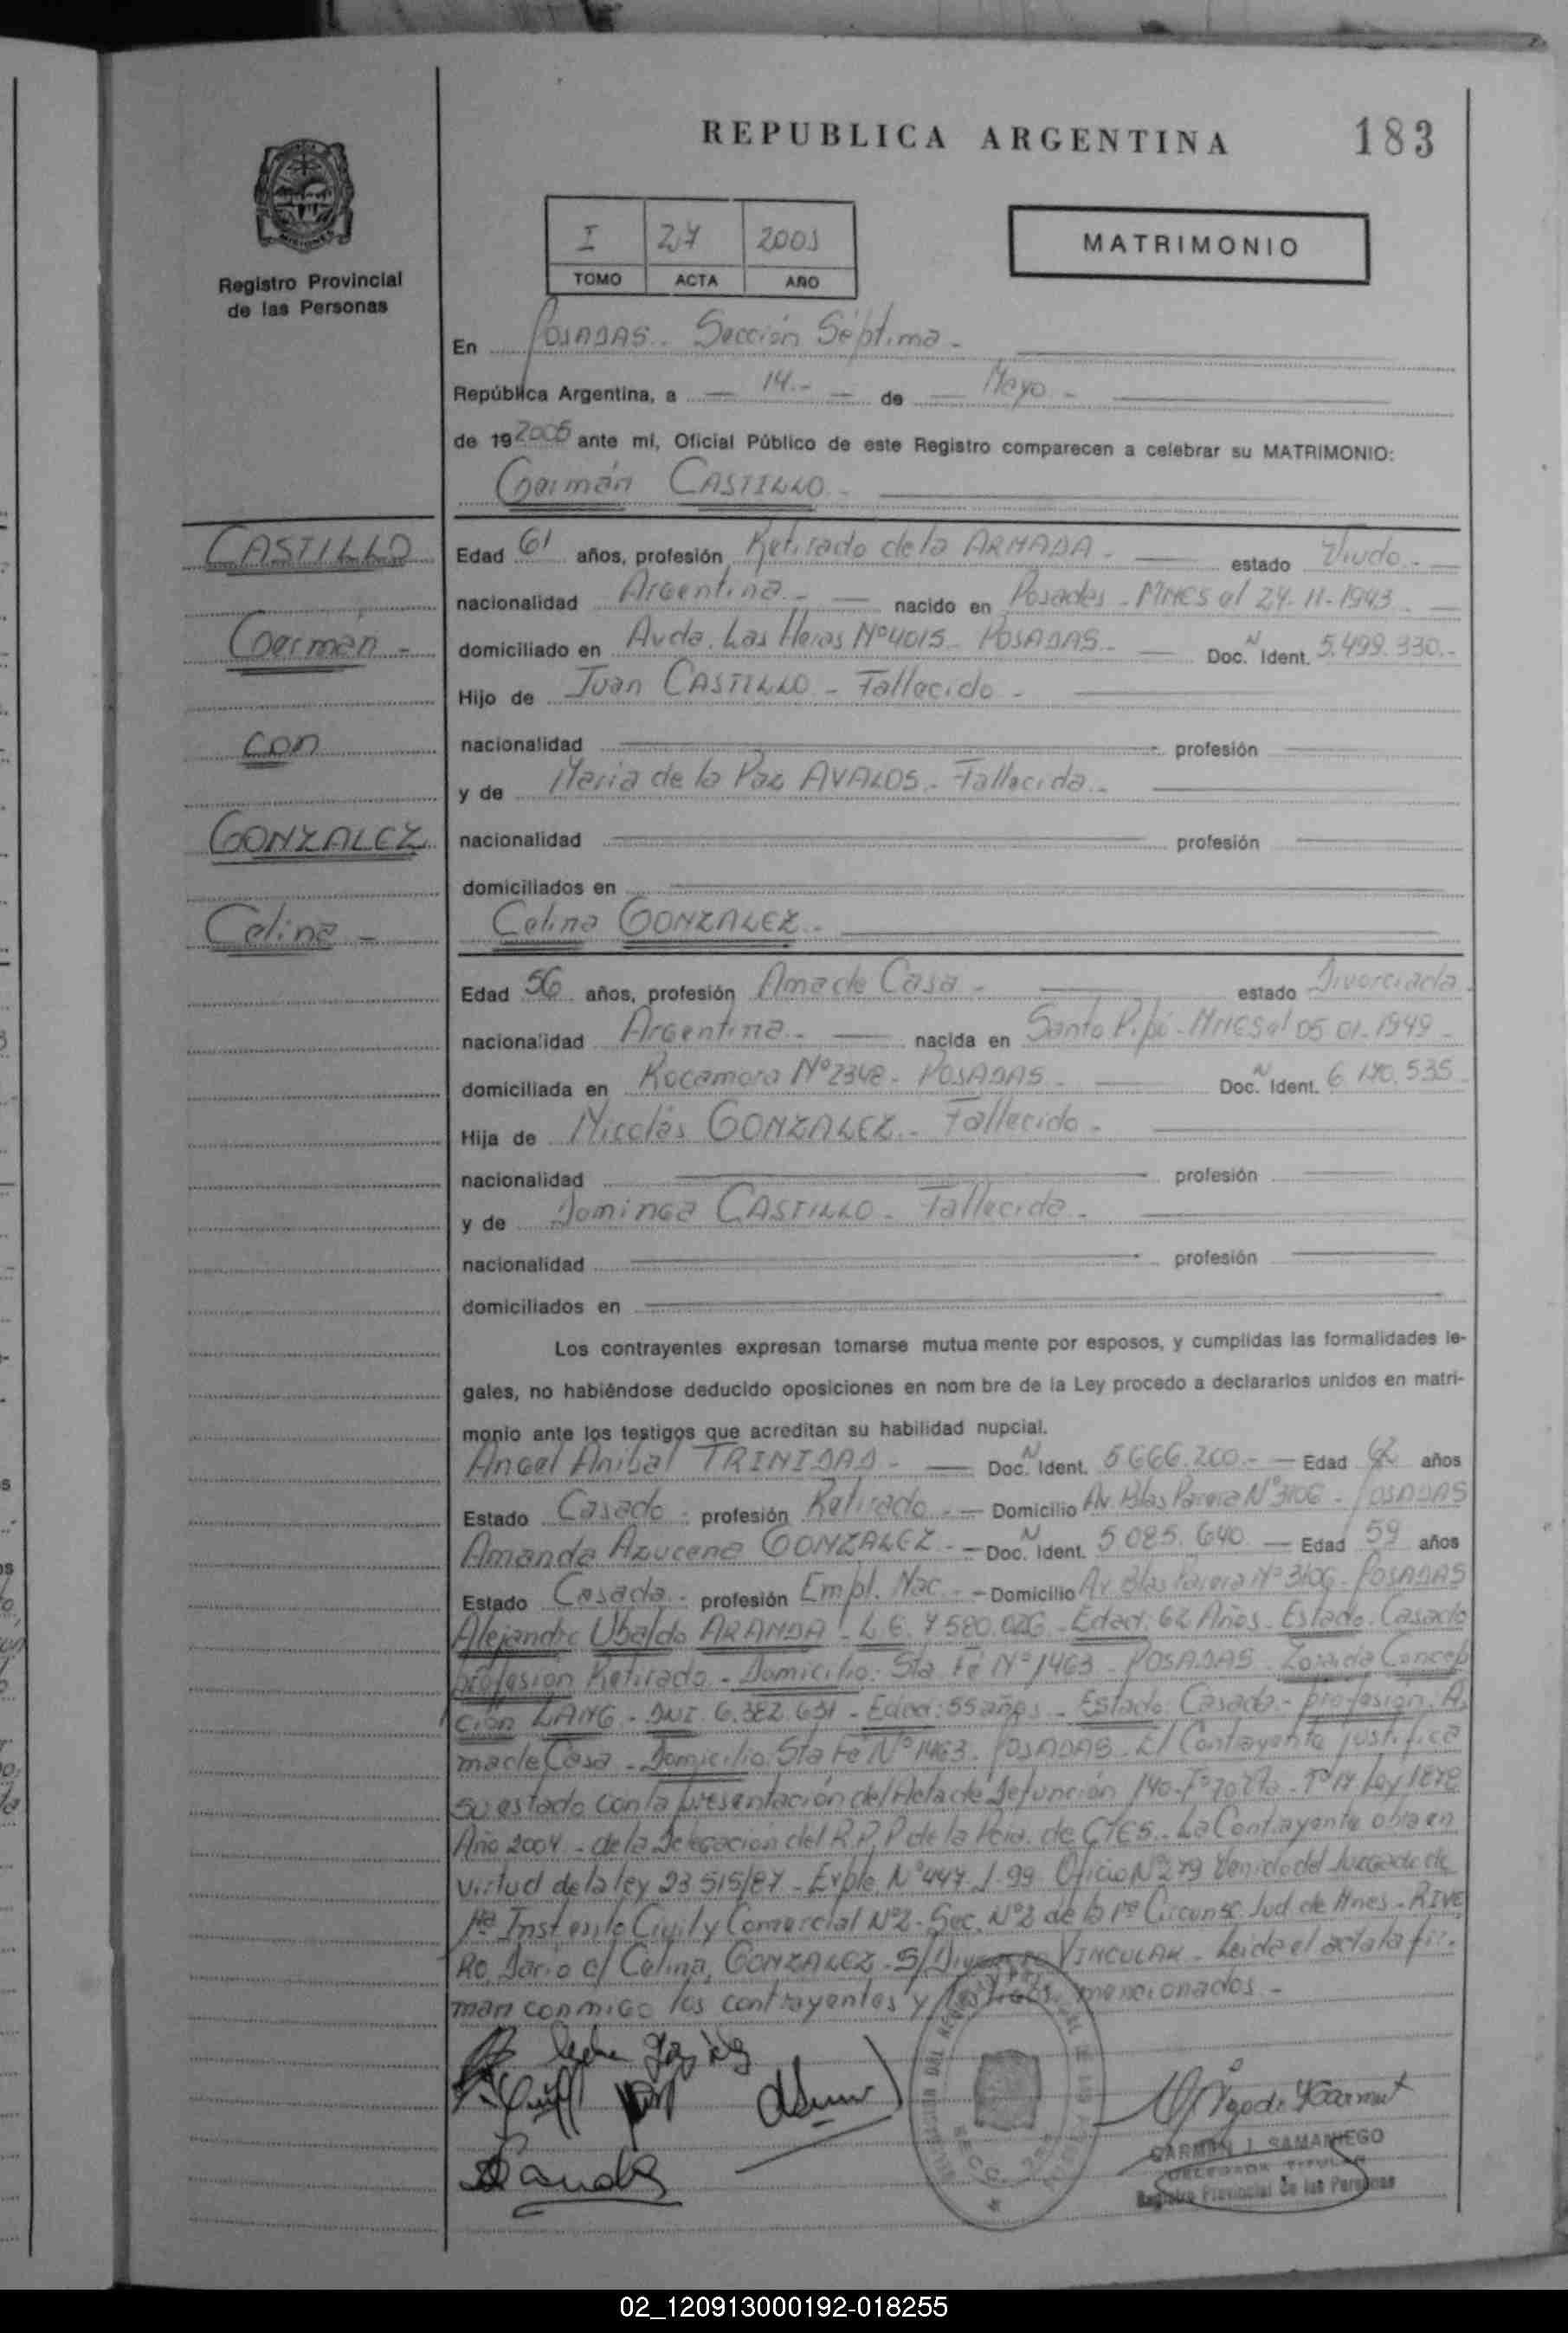 REPUBLICA ARGENTINA 183
MISIONES
Registro Provincial
de las Personas
I 27 2005
TOMO ACTA AÑO
MATRIMONIO
En POSADAS - Sección Séptima -
República Argentina, a - 14.- - de - Mayo -
de 19 2005 ante mí, Oficial Público de este Registro comparecen a celebrar su MATRIMONIO:
Germán CASTILLO -
CASTILLO
Germán -
con
GONZALEZ
Celina -
Edad 61 años, profesión Retirado de la ARMADA - estado Viudo -
nacionalidad Argentina - nacido en Posadas - MNES el 24-11-1943 -
domiciliado en Avda. Las Heras Nº 4015 - POSADAS - Doc. N Ident. 5.499.330.-
Hijo de Juan CASTILLO - Fallecido -
nacionalidad profesión
y de Maria de la Paz AVALOS - Fallecida -
nacionalidad profesión
domiciliados en
Celina GONZALEZ -
Edad 56 años, profesión Ama de Casa - estado Divorciada -
nacionalidad Argentina - nacida en Santo Pipó - MNES el 05-01-1949 -
domiciliada en Rocamora Nº 2348 - POSADAS - Doc. N Ident. 6.170.535
Hija de Nicolás GONZALEZ - Fallecido -
nacionalidad profesión
y de Dominga CASTILLO - Fallecida -
nacionalidad profesión
domiciliados en
Los contrayentes expresan tomarse mutua mente por esposos, y cumplidas las formalidades le-
gales, no habiéndose deducido oposiciones en nom bre de la Ley procedo a declararlos unidos en matri-
monio ante los testigos que acreditan su habilidad nupcial.
Angel Anibal TRINIDAD - Doc. N Ident. 5.666.200 - Edad 62 años
Estado Casado - profesión Retirado - Domicilio Av. Blas Parera Nº 3106 - POSADAS
Amanda Azucena GONZALEZ - Doc. N Ident. 5.085.640 - Edad 59 años
Estado Casada - profesión Empl. Nac. - Domicilio Av. Blas Parera Nº 3106 - POSADAS
Alejandro Ubaldo ARANDA - L.E. 7.580.026 - Edad: 62 Años - Estado: Casado
profesión Retirado - Domicilio: Sta Fé Nº 1463 - POSADAS - Zoraida Concep
ción LANG - DNI. 6.382.631 - Edad: 55 años - Estado: Casada - profesión. A.
ma de Casa - Domicilio: Sta Fé Nº 1463. POSADAS - El Contrayente justifica
su estado con la presentación del Acta de Defunción 140 - Ley 1872
Año 2004 - de la Delegación del R.P.P de la Pcia. de CTES - La Contrayente obra en
virtud de la ley 23.515/87 - Expte. Nº 447 J. 99 Oficio Nº 279 venido del Juzgado de
1ra Inst en lo Civil y Comercial Nº 2 - Sec. Nº 2 de la 1ra Circunsc. Jud. de Mnes - RIVE
RO Dario c/ Celina, GONZALEZ - S/ Divorcio VINCULAR - Leída el acta la fir-
man conmigo los contrayentes y testigos mencionados -
CARMEN J. SAMANIEGO
DELEGADA TITULAR
Registro Provincial de las Personas
02_120913000192-018255